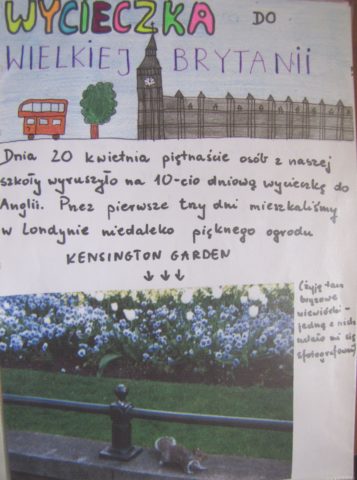 WYCIECZKA DO
WIELKIEJ BRYTANII
Dnia 20 kwietnia piętnaście osób z naszej
szkoły wyruszyło na 10-cio dniową wycieczkę do
Anglii. Przez pierwsze trzy dni mieszkaliśmy
w Londynie niedaleko pięknego ogrodu
KENSINGTON GARDEN
↓ ↓ ↓
(Żyją tam
brązowe
wiewiórki -
jedną z nich
udało mi się
sfotografować)